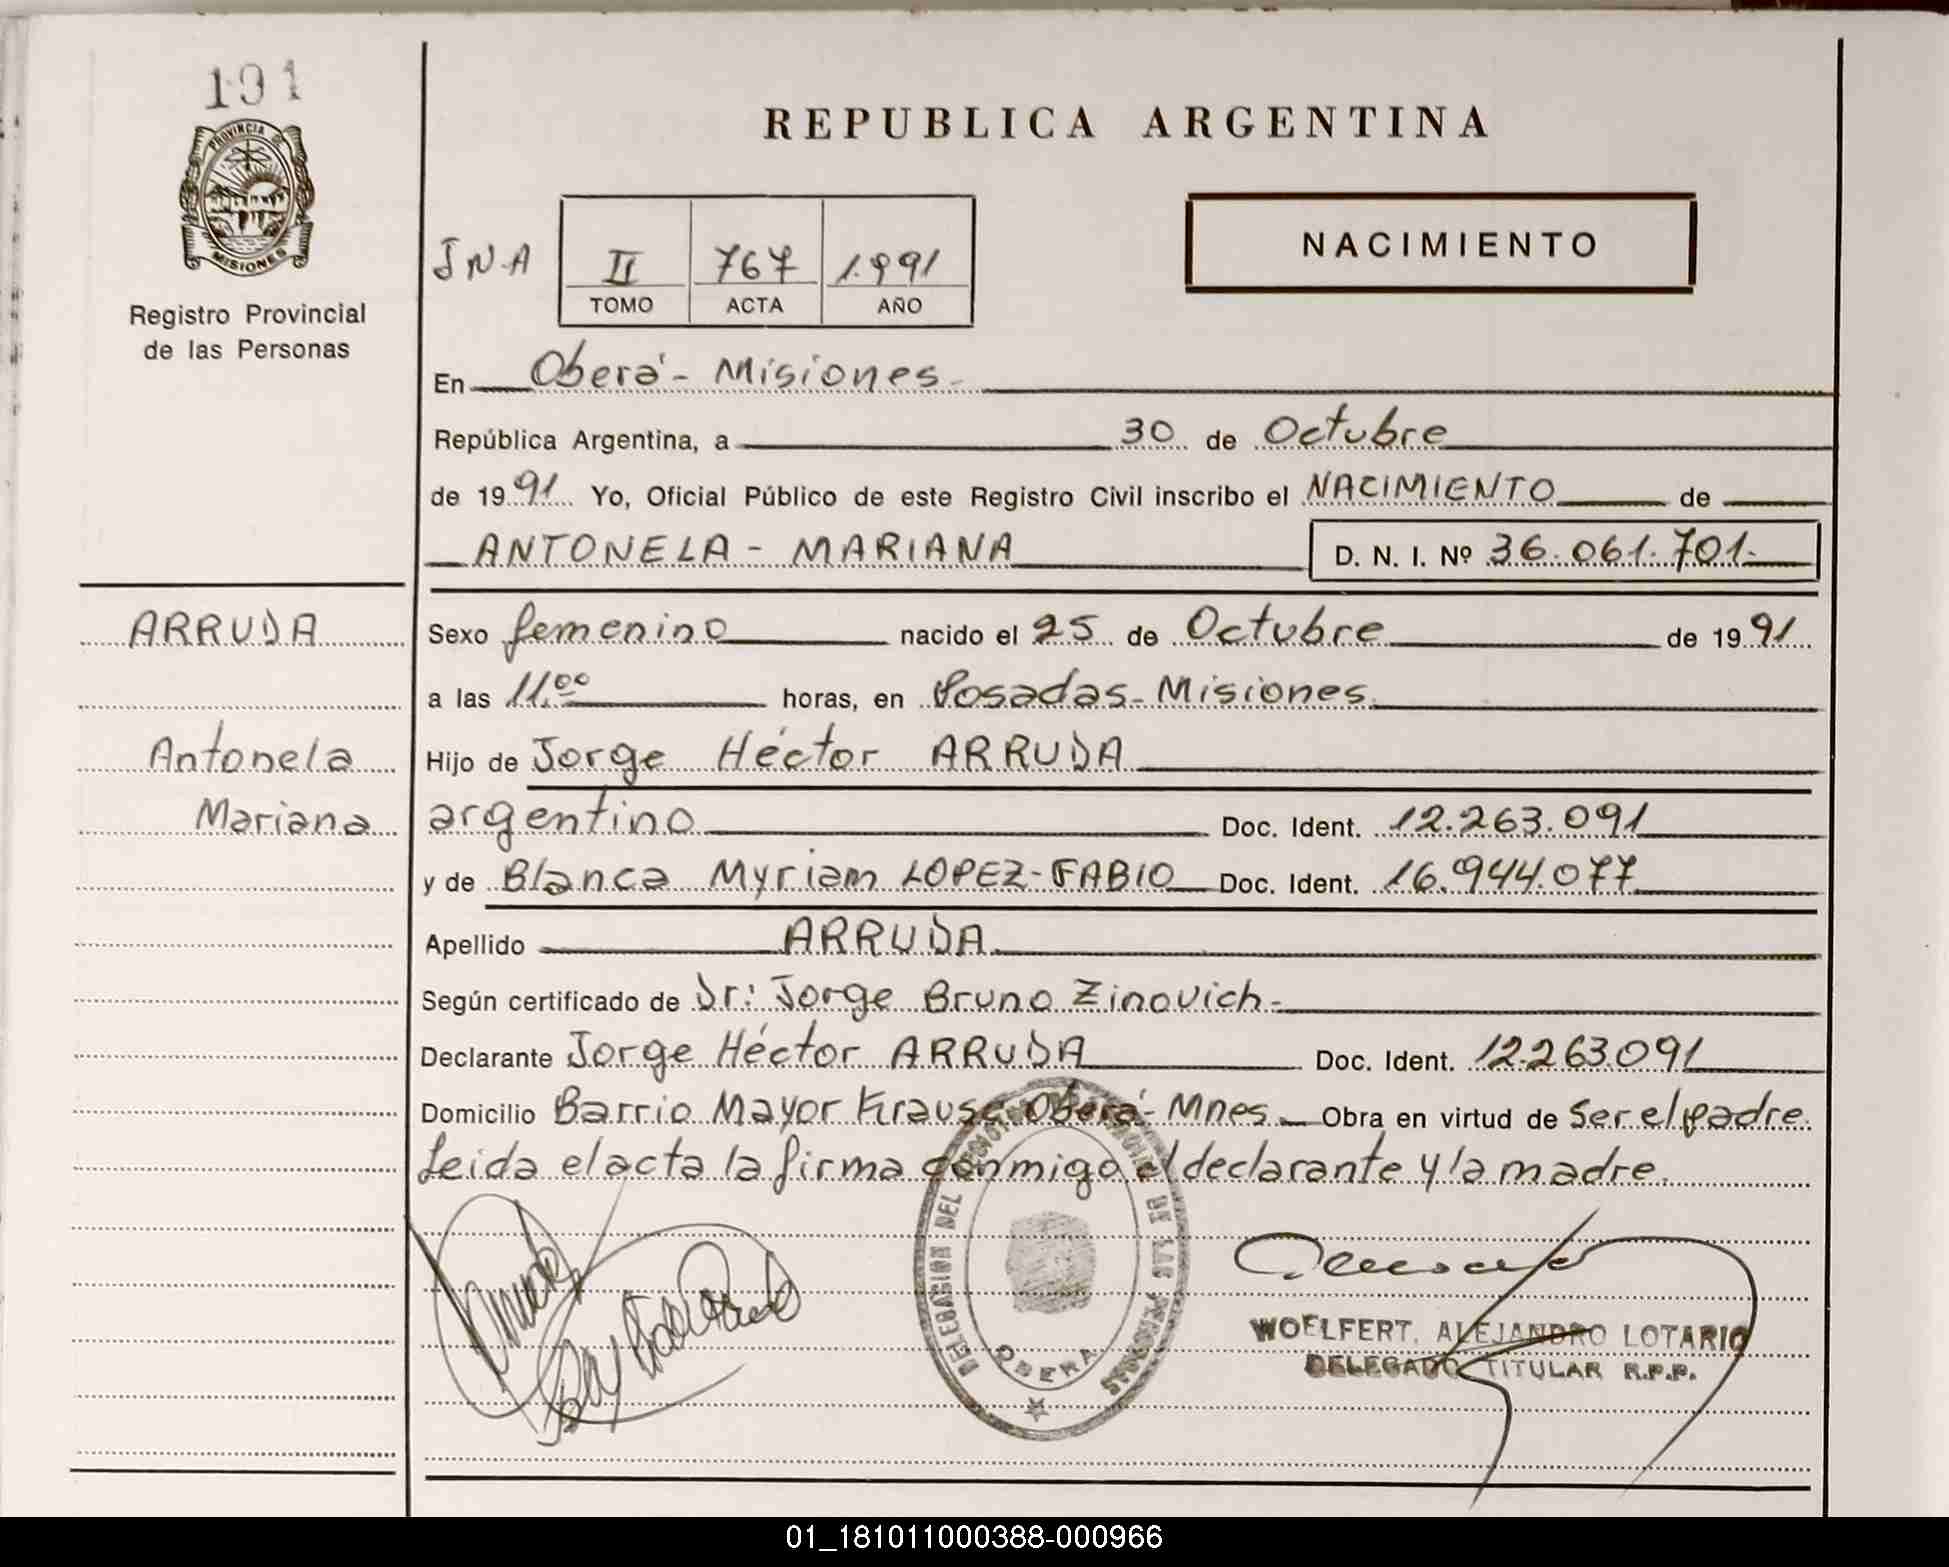 191
PROVINCIA
MISIONES
Registro Provincial
de las Personas
REPUBLICA ARGENTINA
J.N.A
II 767 1.991
TOMO ACTA AÑO
NACIMIENTO
En Oberá - Misiones.
República Argentina, a 30 de Octubre
de 1991 Yo, Oficial Público de este Registro Civil inscribo el NACIMIENTO de
ANTONELA - MARIANA D. N. I. Nº 36.061.701.
ARRUDA
Antonela
Mariana
Sexo femenino nacido el 25 de Octubre de 1991
a las 11.00 horas, en Posadas - Misiones.
Hijo de Jorge Héctor ARRUDA
argentino Doc. Ident. 12.263.091
y de Blanca Myriam LOPEZ-FABIO Doc. Ident. 16.944.077
Apellido ARRUDA
Según certificado de Dr: Jorge Bruno Zinovich -
Declarante Jorge Héctor ARRUDA Doc. Ident. 12.263.091
Domicilio Barrio Mayor Krause Oberá - Mnes. Obra en virtud de ser el padre.
Leida el acta la firma conmigo el declarante y la madre.
DELEGACION DEL REGISTRO PROVINCIAL DE LAS PERSONAS
OBERA
WOELFERT, ALEJANDRO LOTARIO
DELEGADO TITULAR R.P.P.
01_181011000388-000966